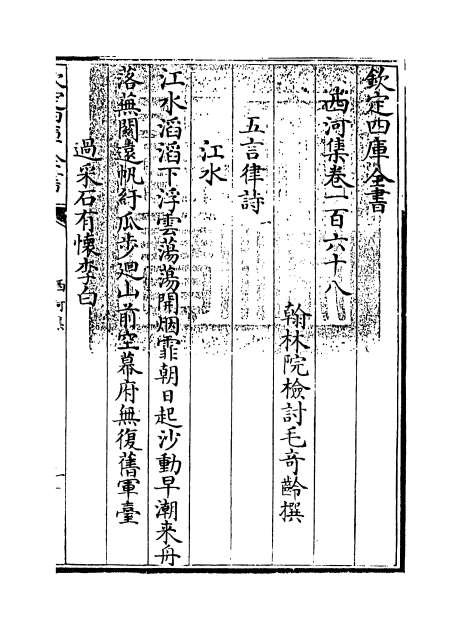 欽定四庫全書
西河集卷一百六十八
翰林院檢討毛竒齡撰
五言律詩
江水
江水滔滔下浮雲蕩蕩開烟霏朝日起沙動早潮来舟
落蕪關逺帆紆瓜步廻山前空幕府無復舊軍臺
過采石有懐李白
欽定四庫全書
西河集
一